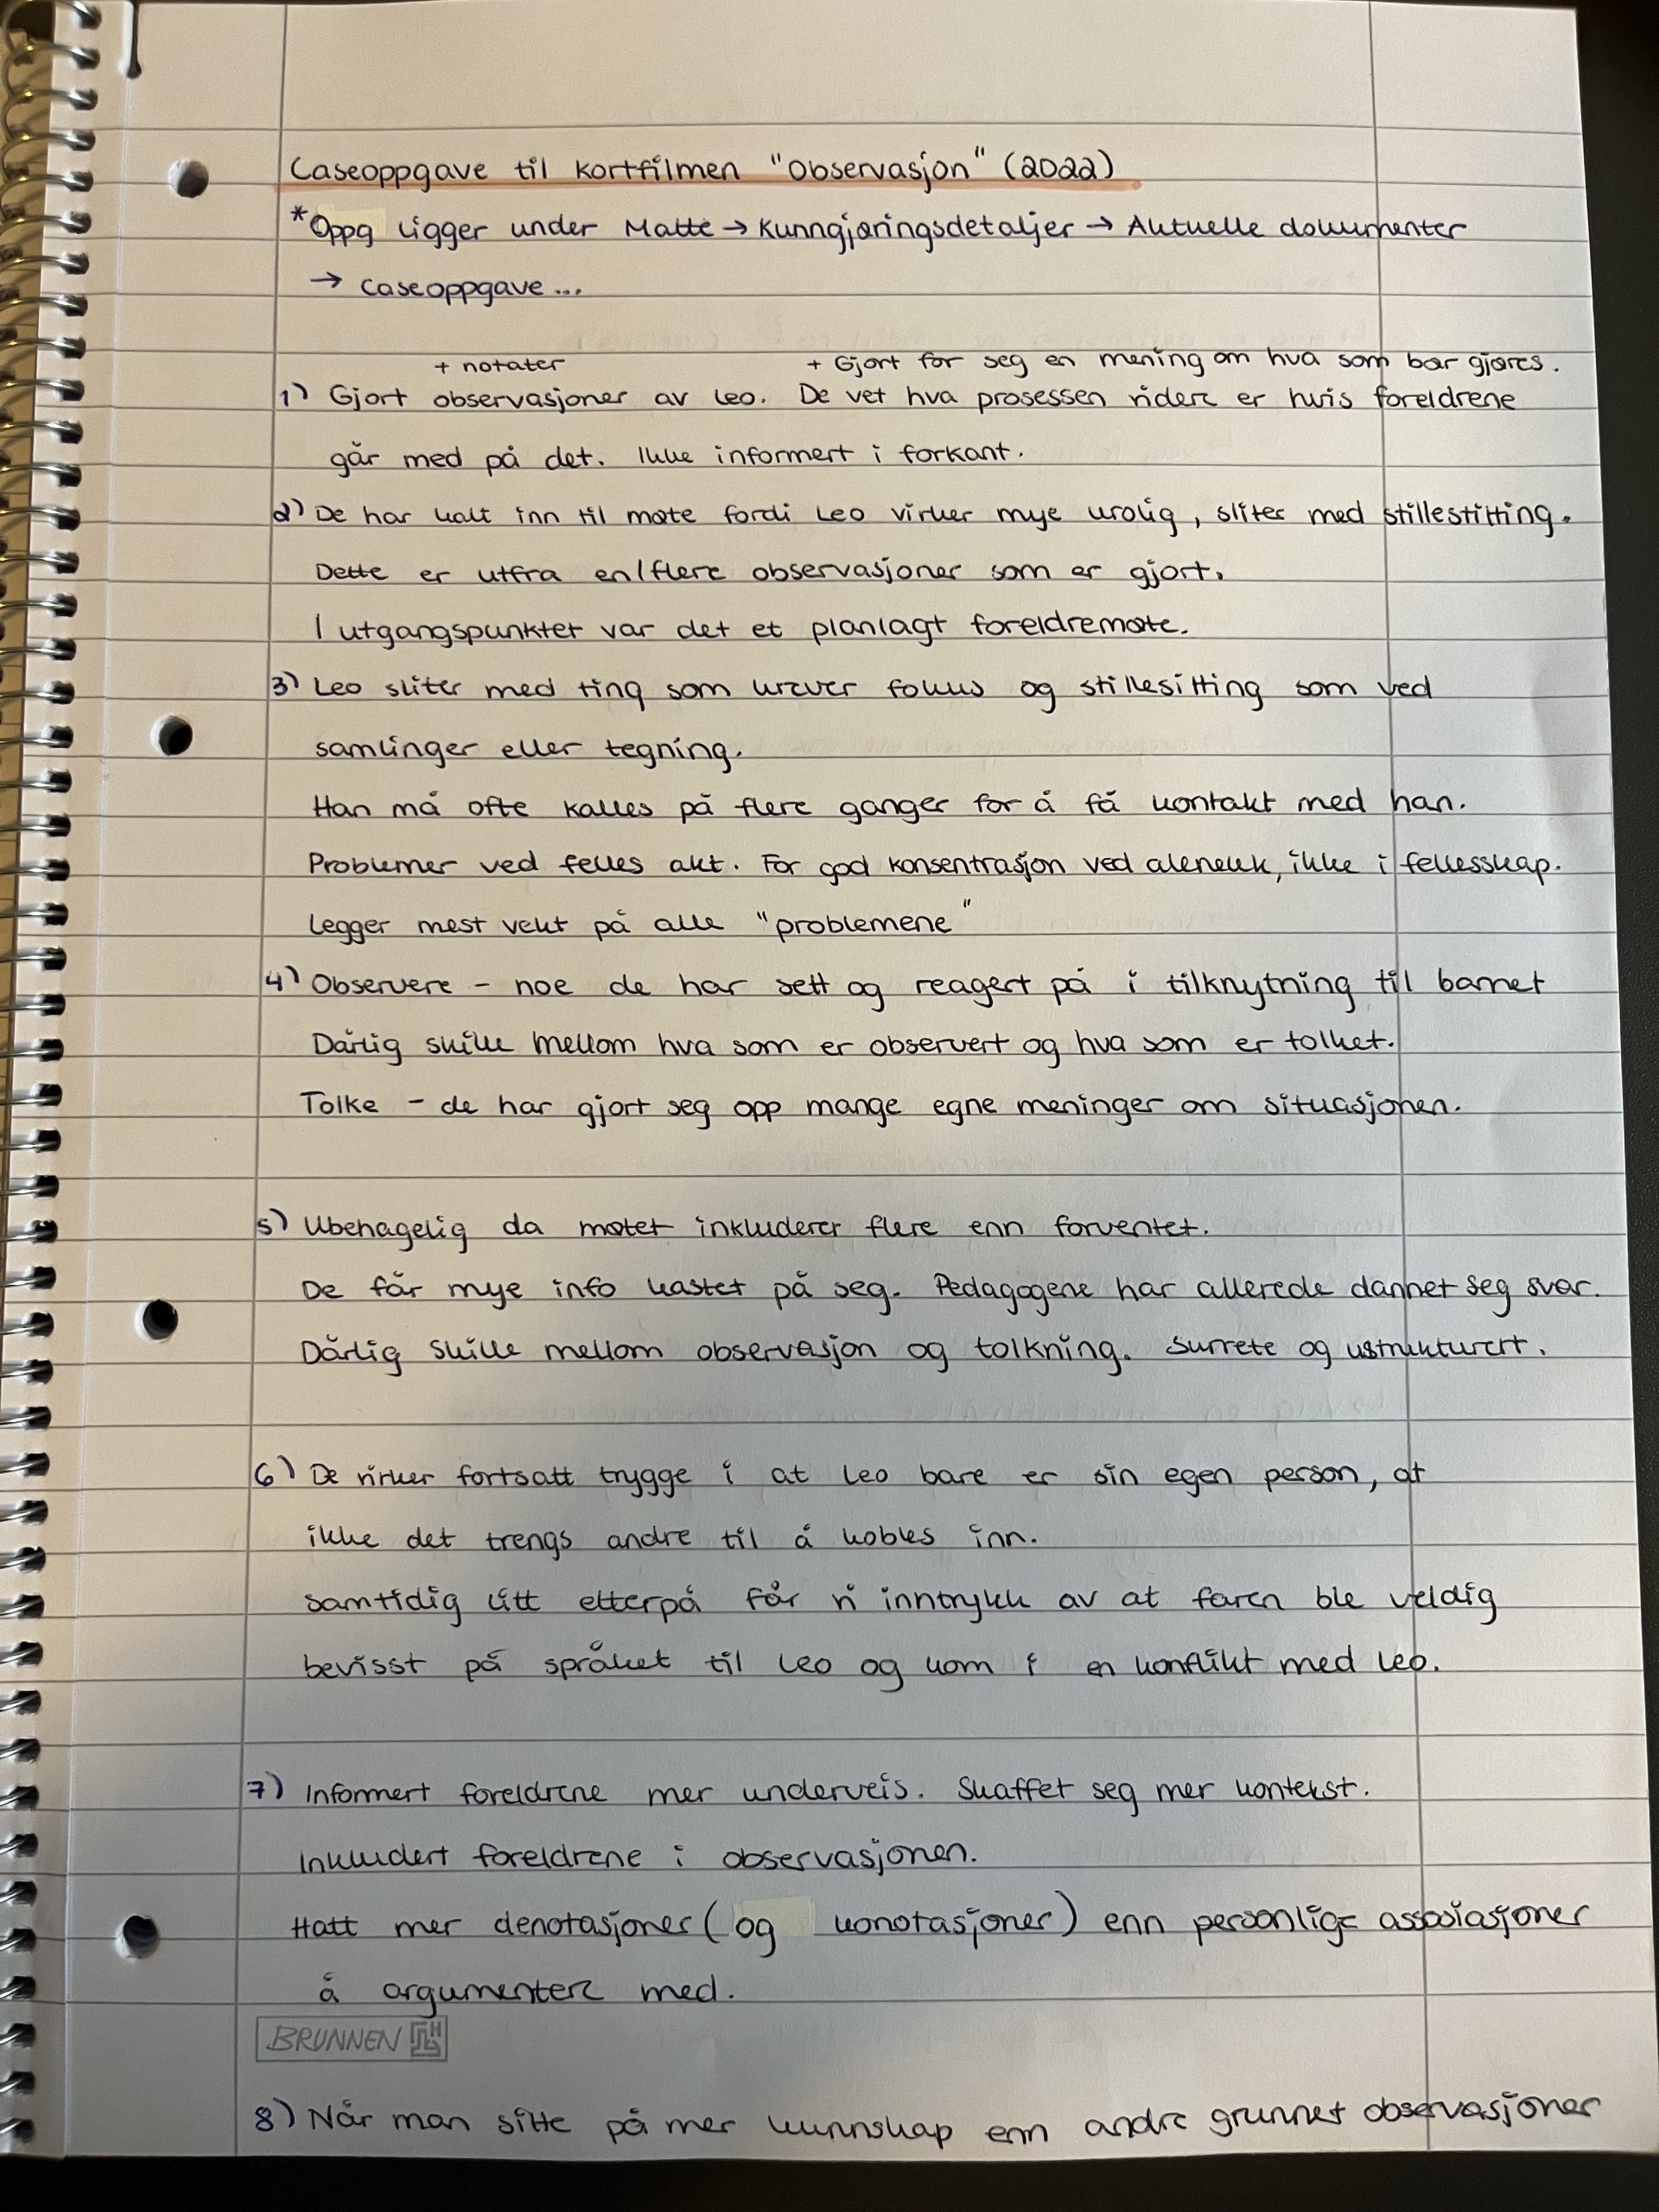 Caseoppgave til kortfilmen "Observasjon" (2022)
*Oppg ligger under Matte → Kunngjøringsdetaljer → Aktuelle dokumenter
→ caseoppgave...
+ notater + Gjort for seg en mening om hva som bør gjøres.
1) Gjort observasjoner av Leo. De vet hva prosessen videre er hvis foreldrene
går med på det. Ikke informert i forkant.
2) De har kalt inn til møte fordi Leo virker mye urolig, sliter med stillestitting.
Dette er utfra en/flere observasjoner som er gjort.
I utgangspunktet var det et planlagt foreldremøte.
3) Leo sliter med ting som krever fokus og stillesitting som ved
samlinger eller tegning.
Han må ofte kalles på flere ganger for å få kontakt med han.
Problemer ved felles akt. For god konsentrasjon ved alenelek, ikke i fellesskap.
Legger mest vekt på alle "problemene"
4) Observere - noe de har sett og reagert på i tilknytning til barnet
Dårlig skille mellom hva som er observert og hva som er tolket.
Tolke - de har gjort seg opp mange egne meninger om situasjonen.
5) Ubehagelig da møtet inkluderer flere enn forventet.
De får mye info kastet på seg. Pedagogene har allerede dannet seg svar.
Dårlig skille mellom observasjon og tolkning. Surrete og ustrukturert.
6) De virker fortsatt trygge i at Leo bare er sin egen person, at
ikke det trengs andre til å kobles inn.
samtidig litt etterpå får vi inntrykk av at faren ble veldig
bevisst på språket til Leo og kom i en konflikt med Leo.
7) Informert foreldrene mer underveis. Skaffet seg mer kontekst.
Inkludert foreldrene i observasjonen.
Hatt mer denotasjoner (og konotasjoner) enn personlige assosiasjoner
å argumentere med.
BRUNNEN
8) Når man sitte på mer kunnskap enn andre grunnet observasjoner